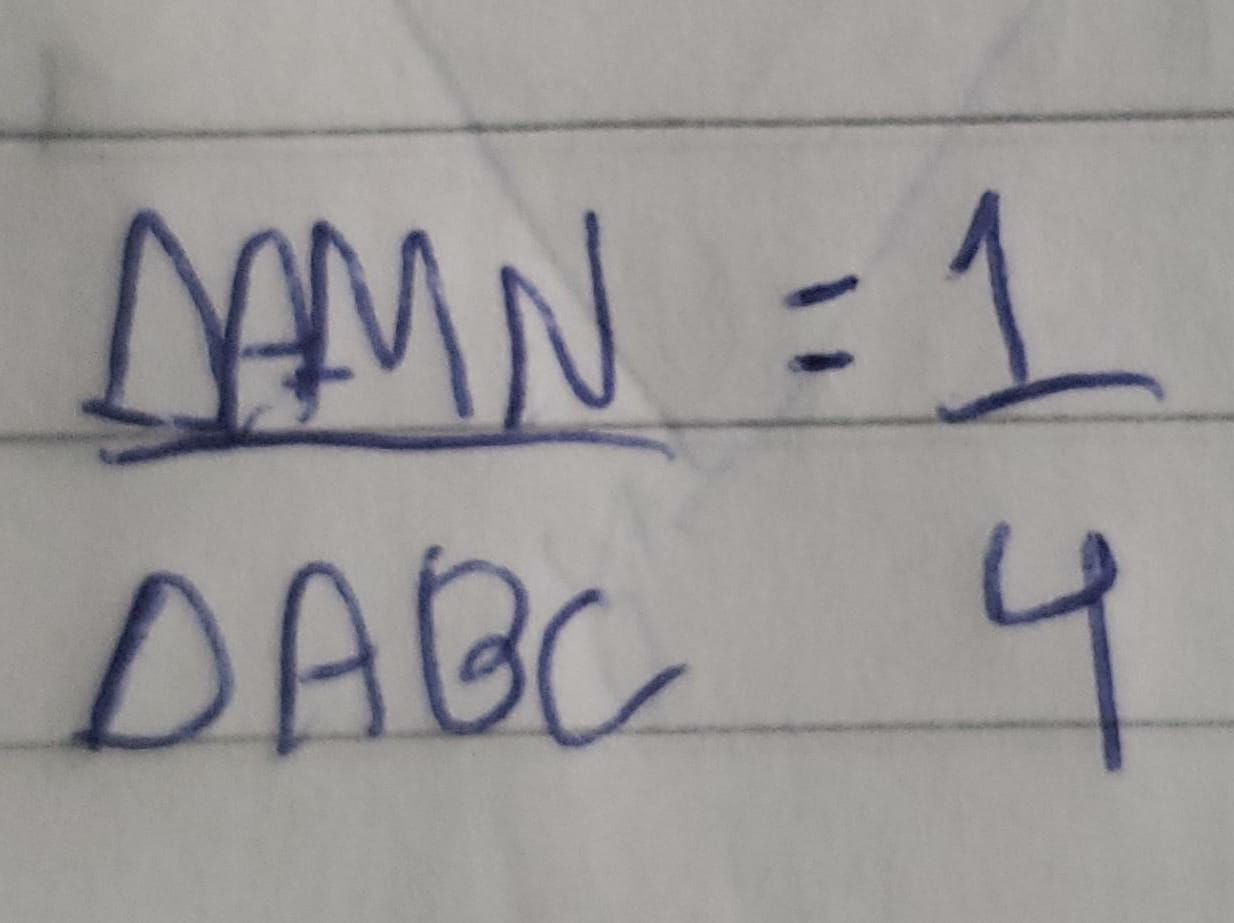 ΔAMN = 1
ΔABC 4